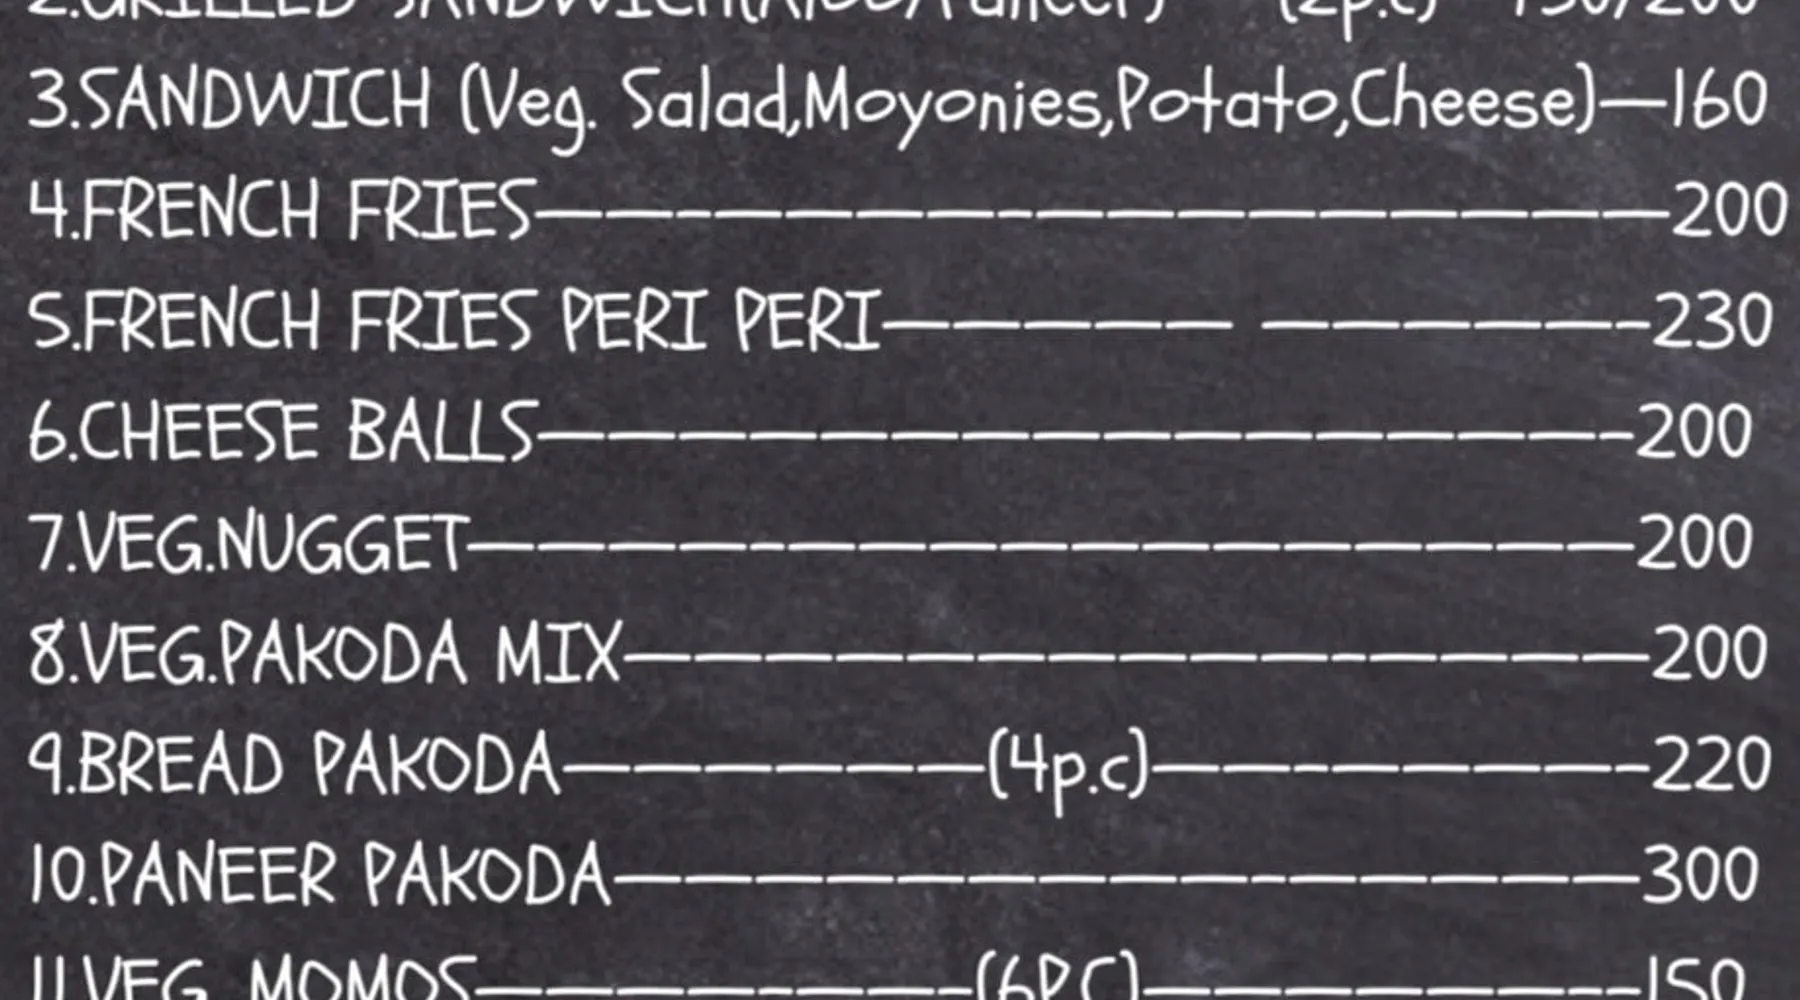 2.GRILLED SANDWICH (2p.c)
3.SANDWICH (Veg. Salad,Moyonies,Potato,Cheese)——160
4.FRENCH FRIES————————————————200
5.FRENCH FRIES PERI PERI————— ——————230
6.CHEESE BALLS————————————————200
7.VEG.NUGGET—————————————————200
8.VEG.PAKODA MIX———————————————200
9.BREAD PAKODA——————(4p.c)———————220
10.PANEER PAKODA———————————————300
11.VEG. MOMOS———————(6PC)———————150